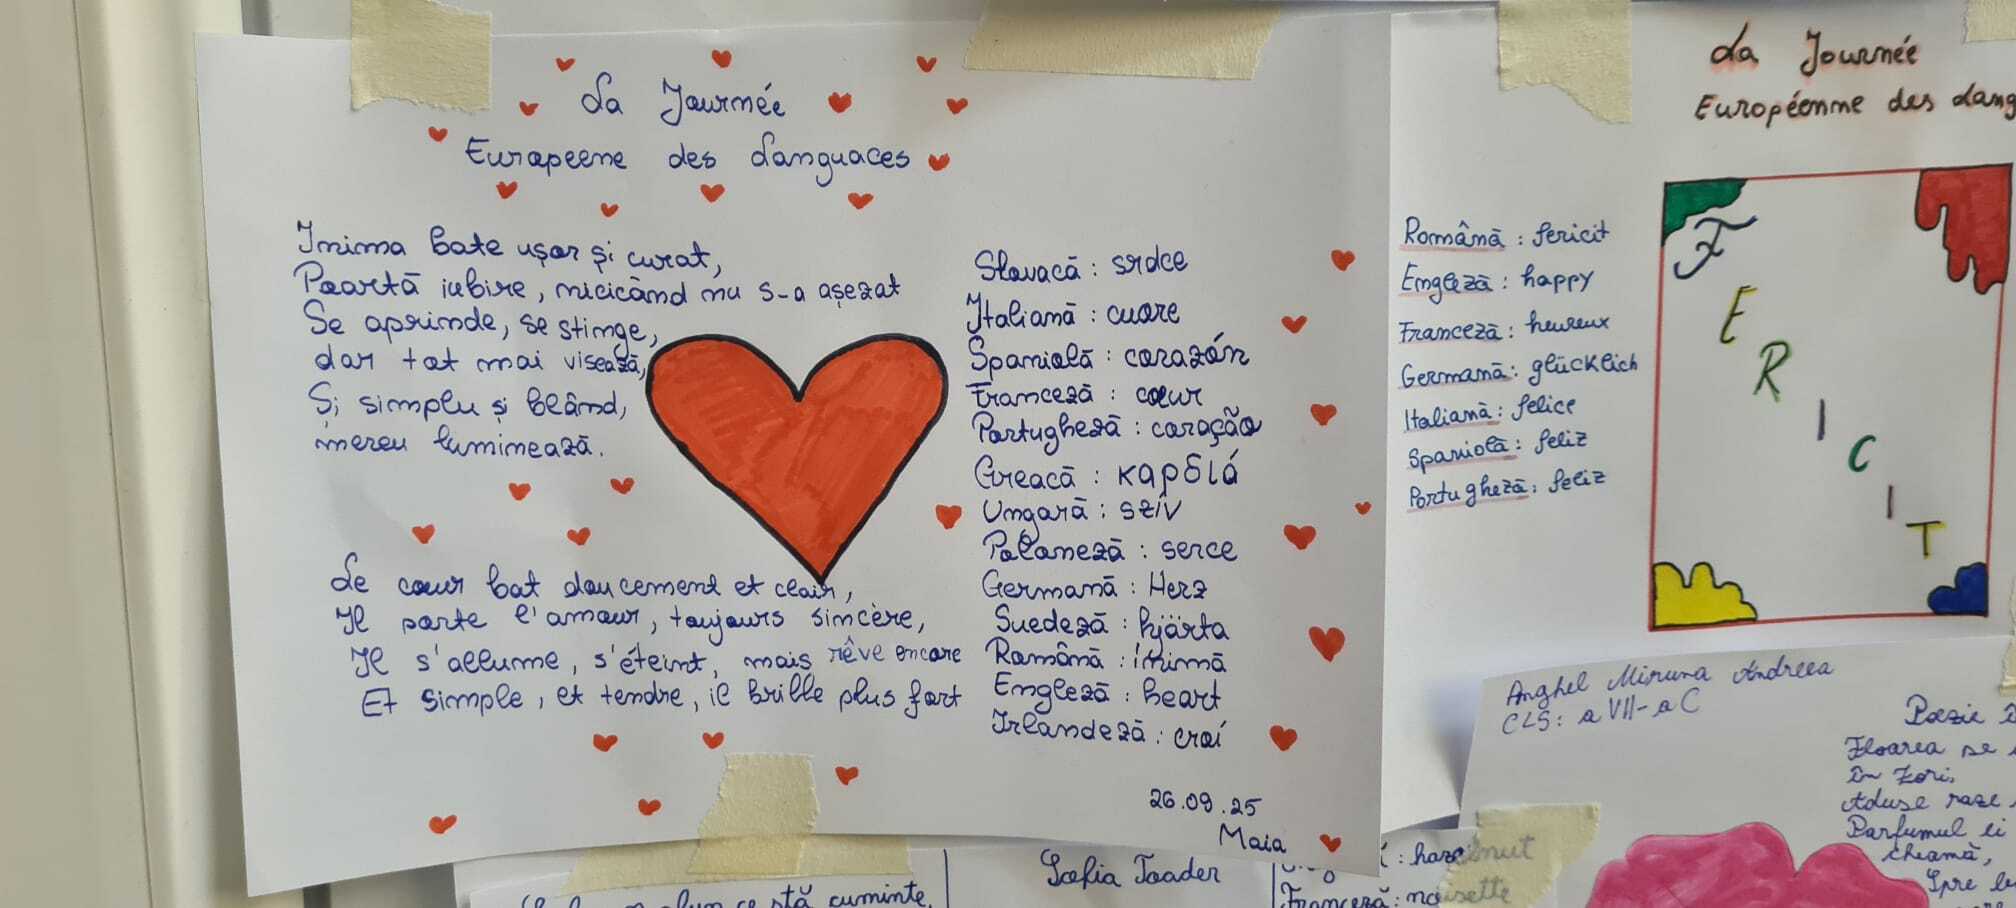 La Journée
Europeene des Languaces
Inima bate ușor și curat,
Poartă iubire, nicicând nu s-a așezat
Se aprinde, se stinge,
dar tot mai visează,
Și simplu și blând,
mereu luminează.
Le cœur bat doucement et clair,
Il porte l'amour, toujours sincère,
Il s'allume, s'éteint, mais rêve encore
Et simple, et tendre, il brille plus fort
Slovacă : srdce
Italiană : cuore
Spaniolă : corazón
Franceză : cœur
Portugheză : coração
Greacă : καρδιά
Ungară : szív
Poloneză : serce
Germană : Herz
Suedeză : hjärta
Română : inimă
Engleză : heart
Irlandeză : croí
26.09.25
Maia
La Journée
Européenne des Lang
Română : fericit
Engleză : happy
Franceză : heureux
Germană : glücklich
Italiană : felice
Spaniolă : feliz
Portugheză : feliz
F
E
R
I
C
I
T
Anghel Miruna Andreea
CLS: a VII-a C
Poezie
Floarea se
În zori,
Aduse raze
Parfumul ei
cheamă,
Spre
Sofia Toader
stă cuminte,
: hazelnut
Franceză : noisette